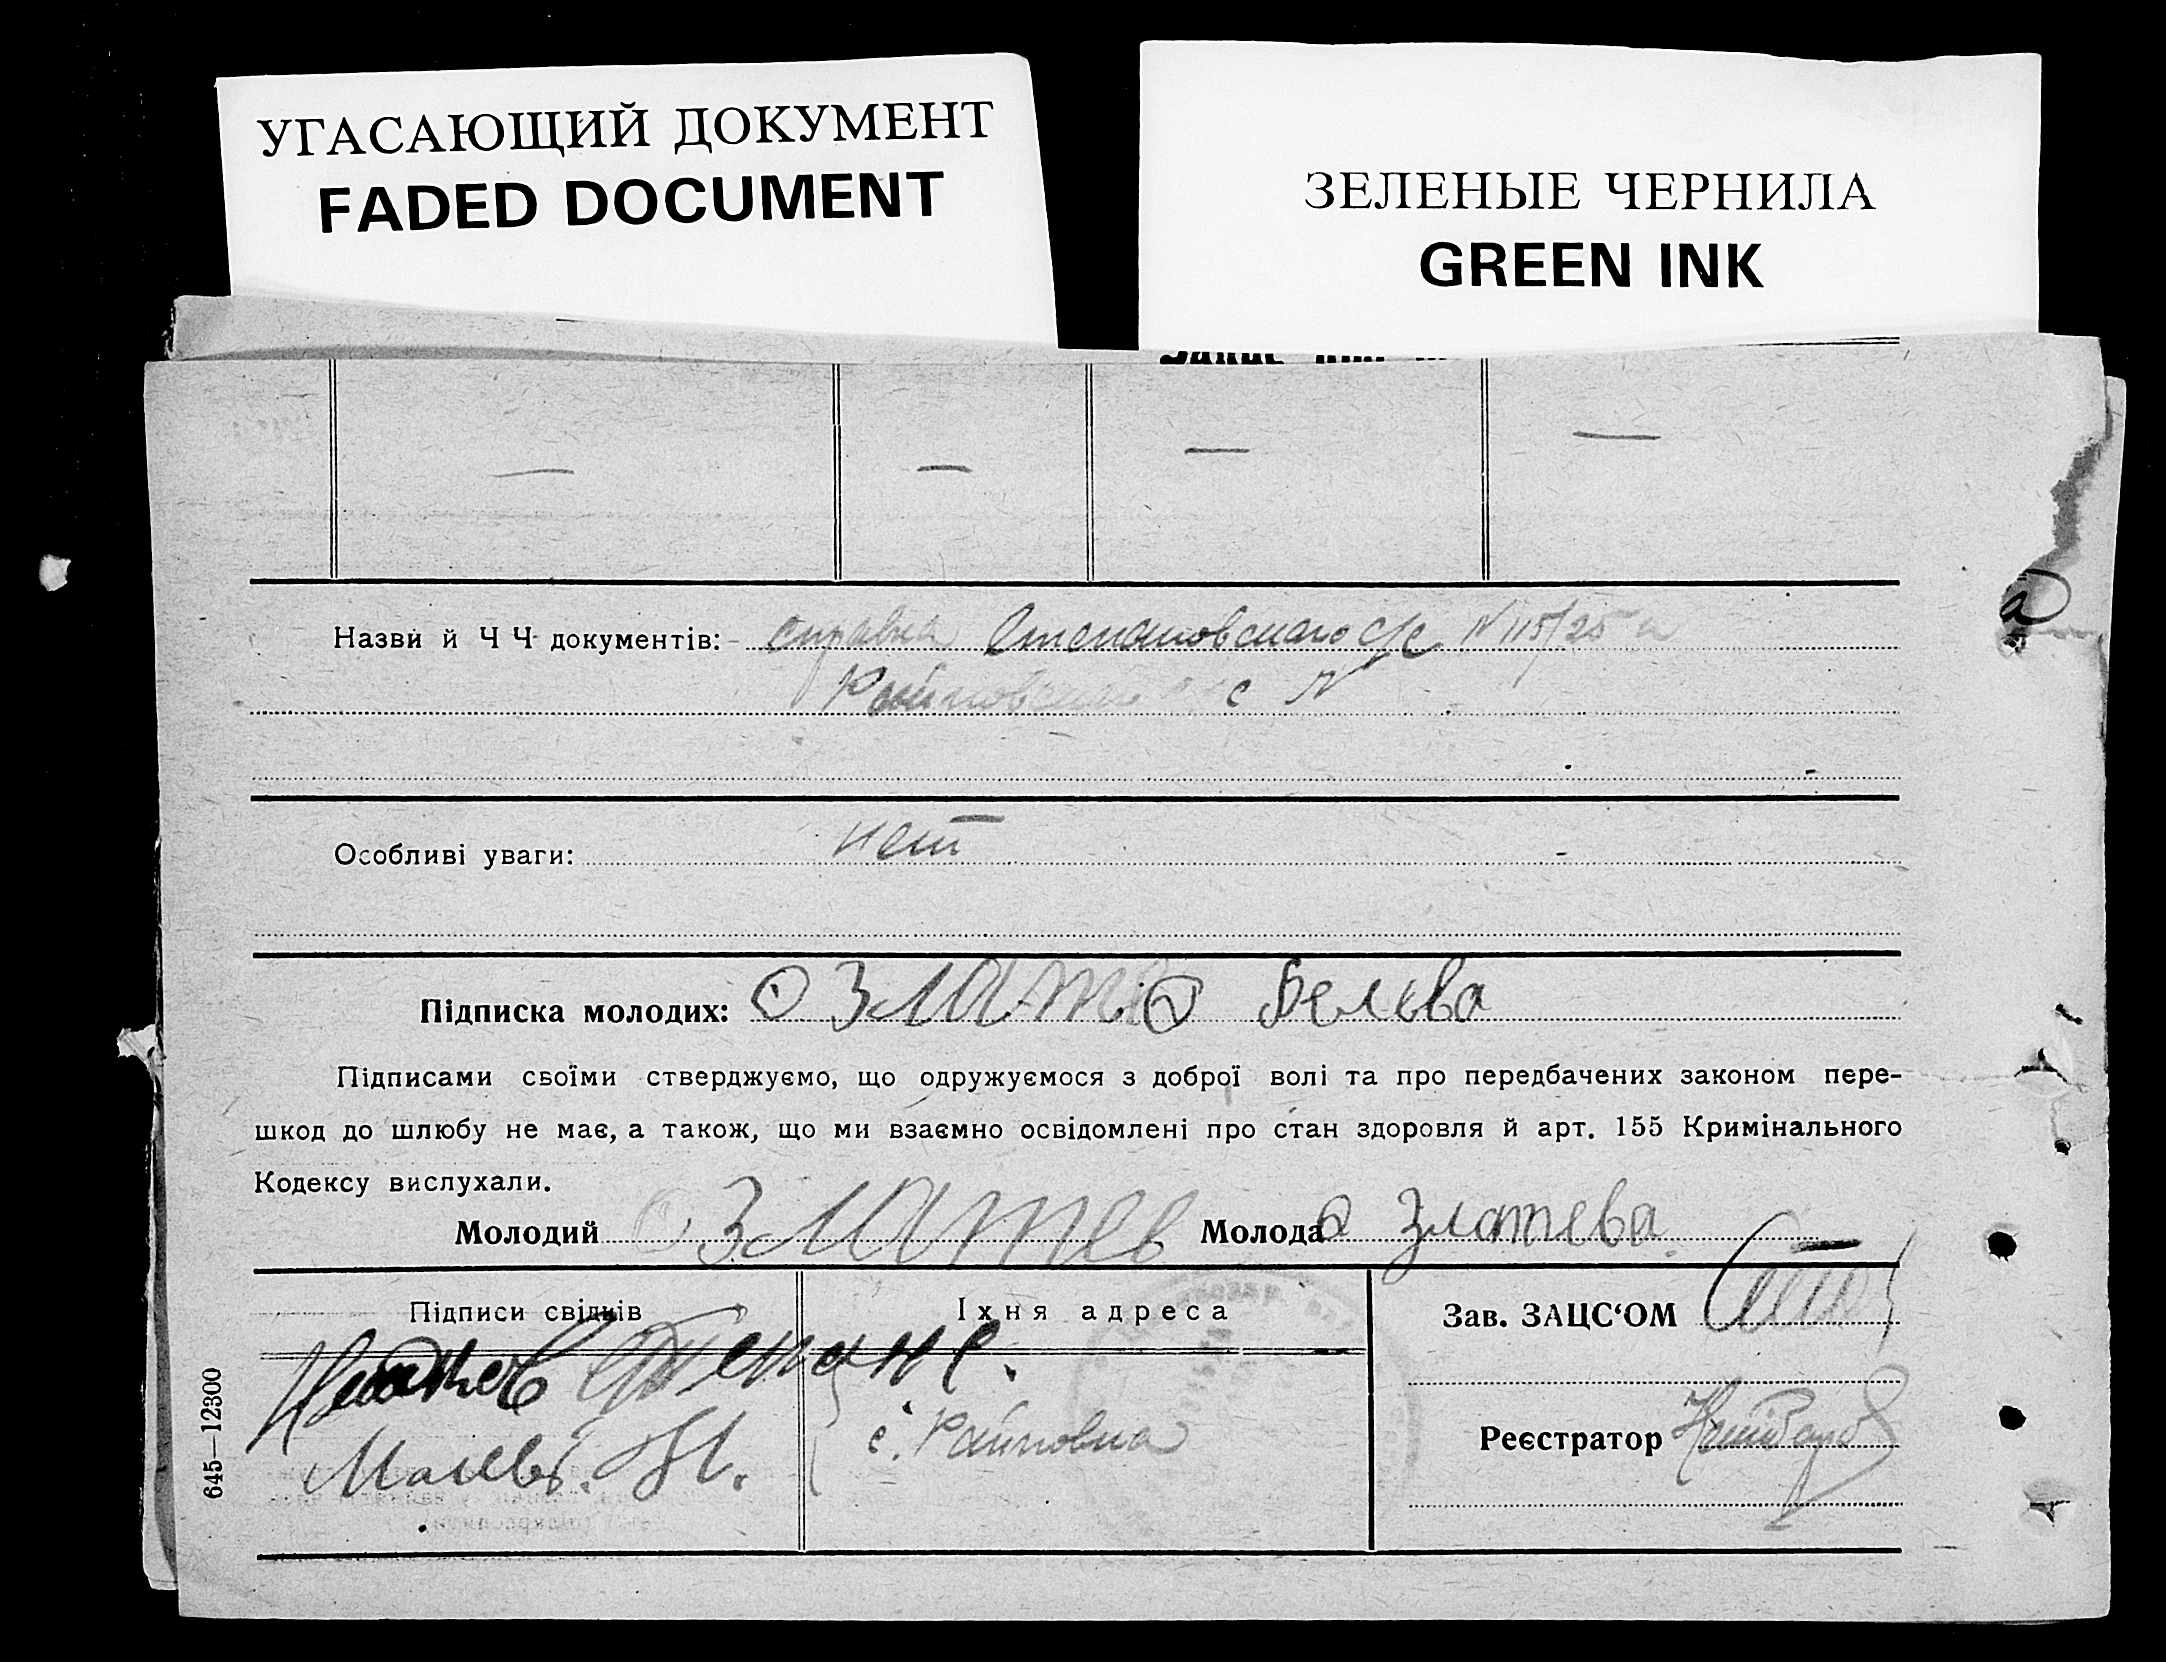 УГАСАЮЩИЙ ДОКУМЕНТ
FADED DOCUMENT
ЗЕЛЕНЫЕ ЧЕРНИЛА
GREEN INK
Назви й Ч Ч документів: справка Степановского с/с N 115/25 и
Райновского с N
Особливі уваги: нет
Підписка молодих: Златев Белева
Підписами своїми стверджуємо, що одружуємося з доброї волі та про передбачених законом пере-
шкод до шлюбу не має, а також, що ми взаємно освідомлені про стан здоровля й арт. 155 Кримінального
Кодексу вислухали.
Молодий Златев Молода Златева
Підписи свідків
Їхня адреса
Зав. ЗАЦС‘ОМ
с. Райновка
Реєстратор
645—12300